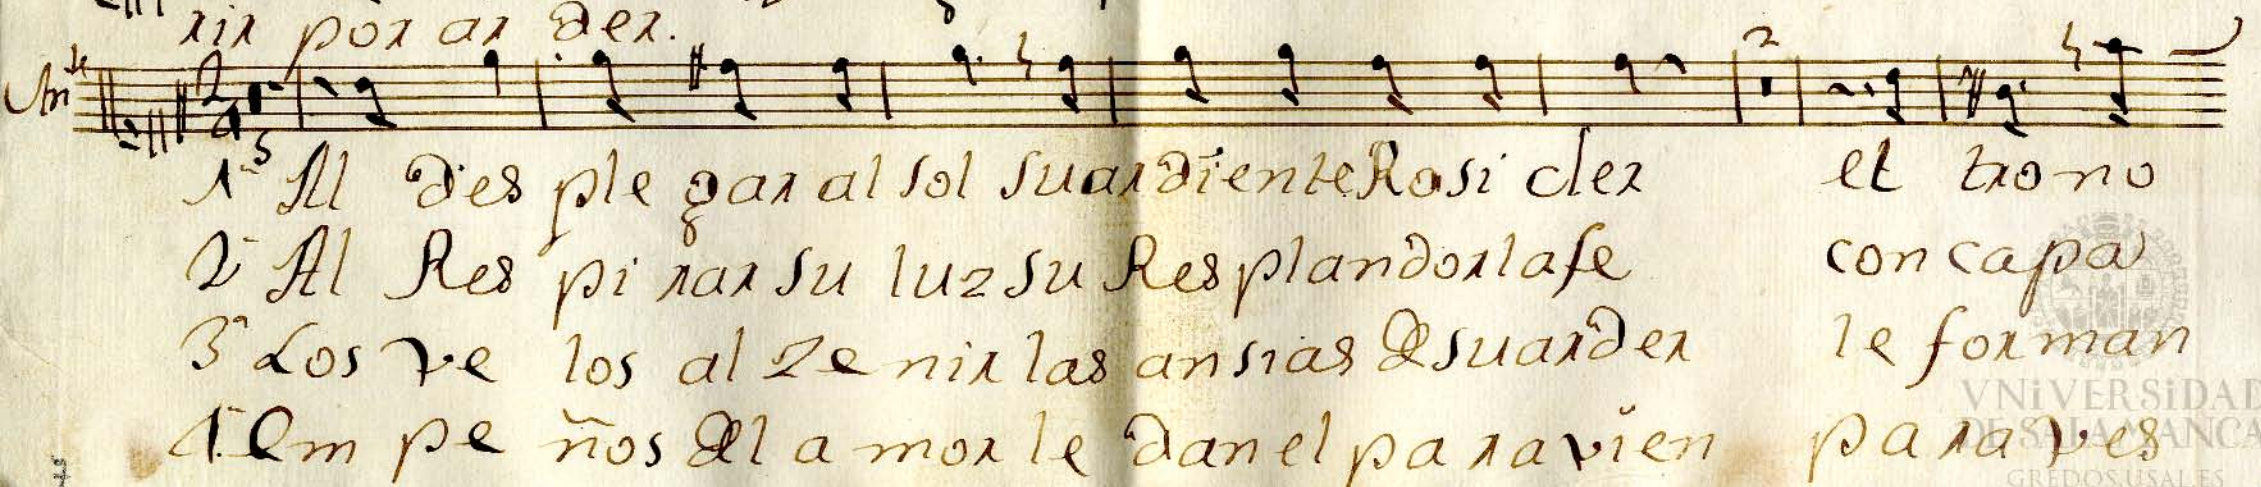 rir por ar der.
Ande
2
5
1ª Al des ple gar al sol su ardiente Rosi cler el trono
2ª Al Res pi rar su luz su Resplandor la fe con capa
3ª Los ve los al zenir las ansias de su arder le forman
4ª Em pe ños del amor le dan el paravien para ves
VNiVERSiDAD
DE SALAMANCA
GREDOS.USAL.ES